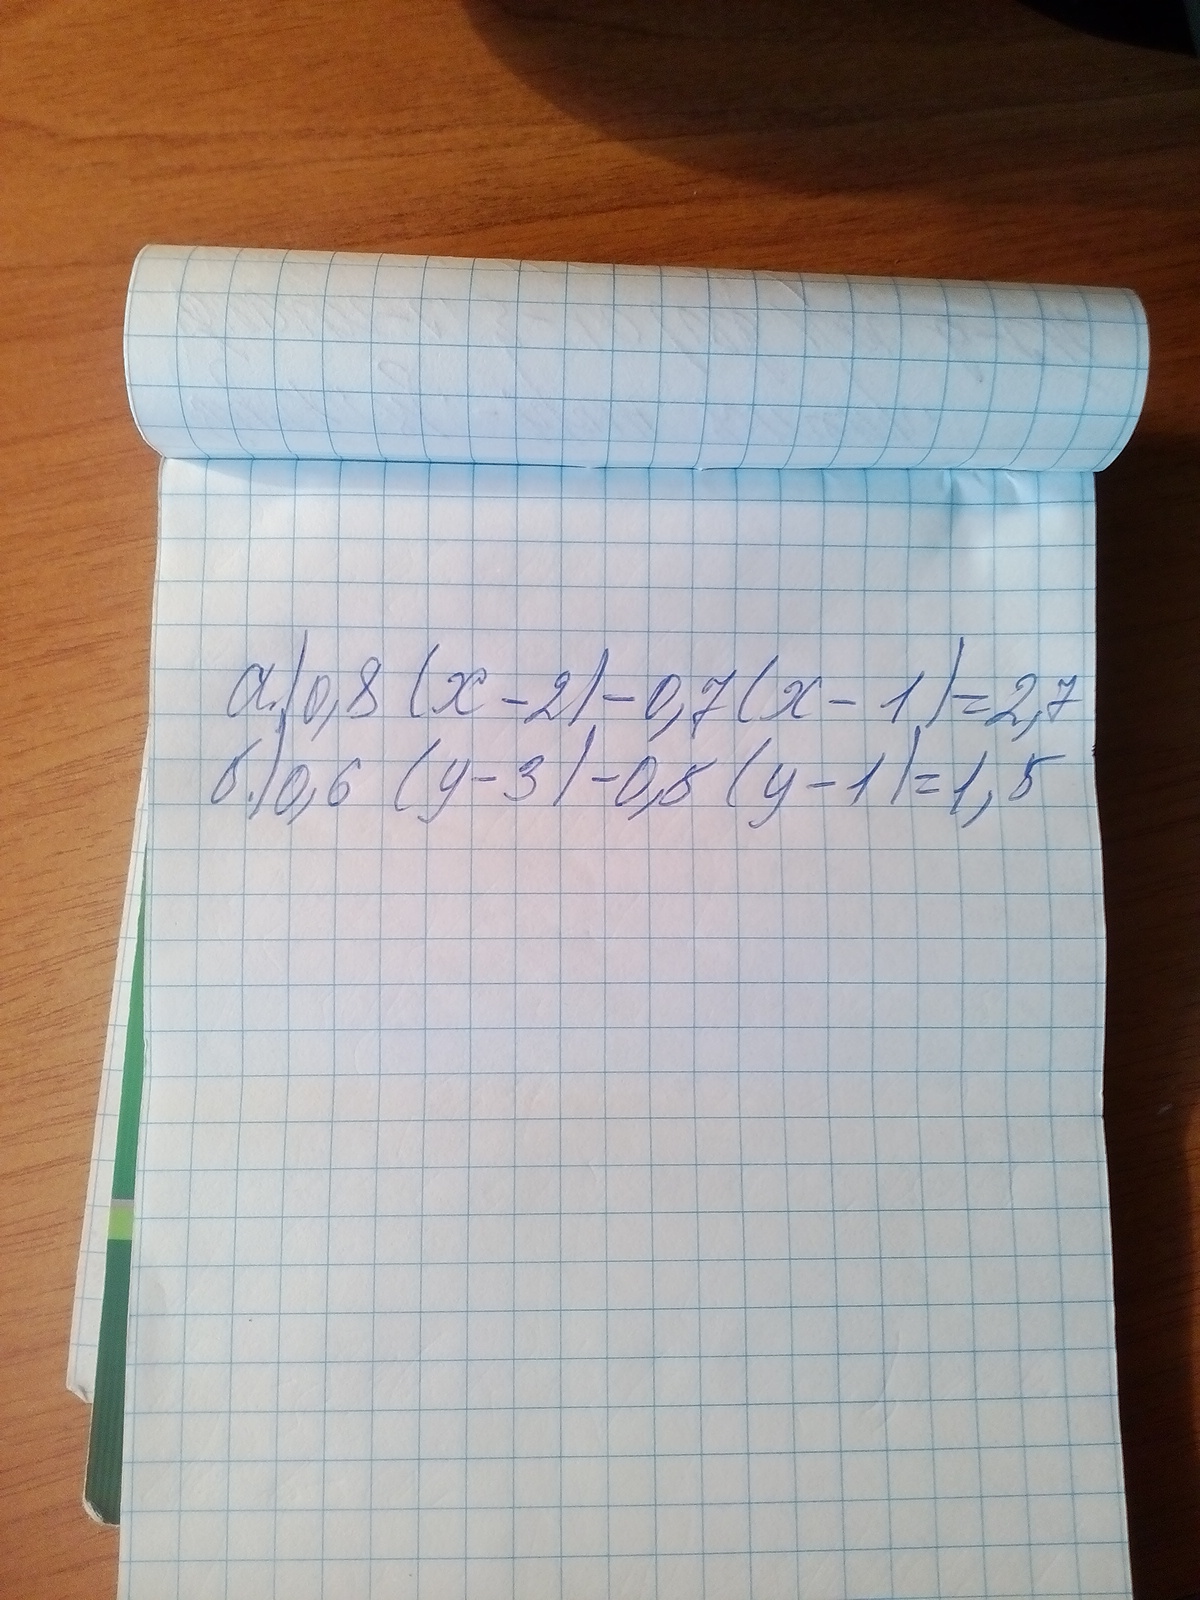 а.)0,8 (x-2)-0,7(x-1)=2,7
б.)0,6 (y-3)-0,5 (y-1)=1,5